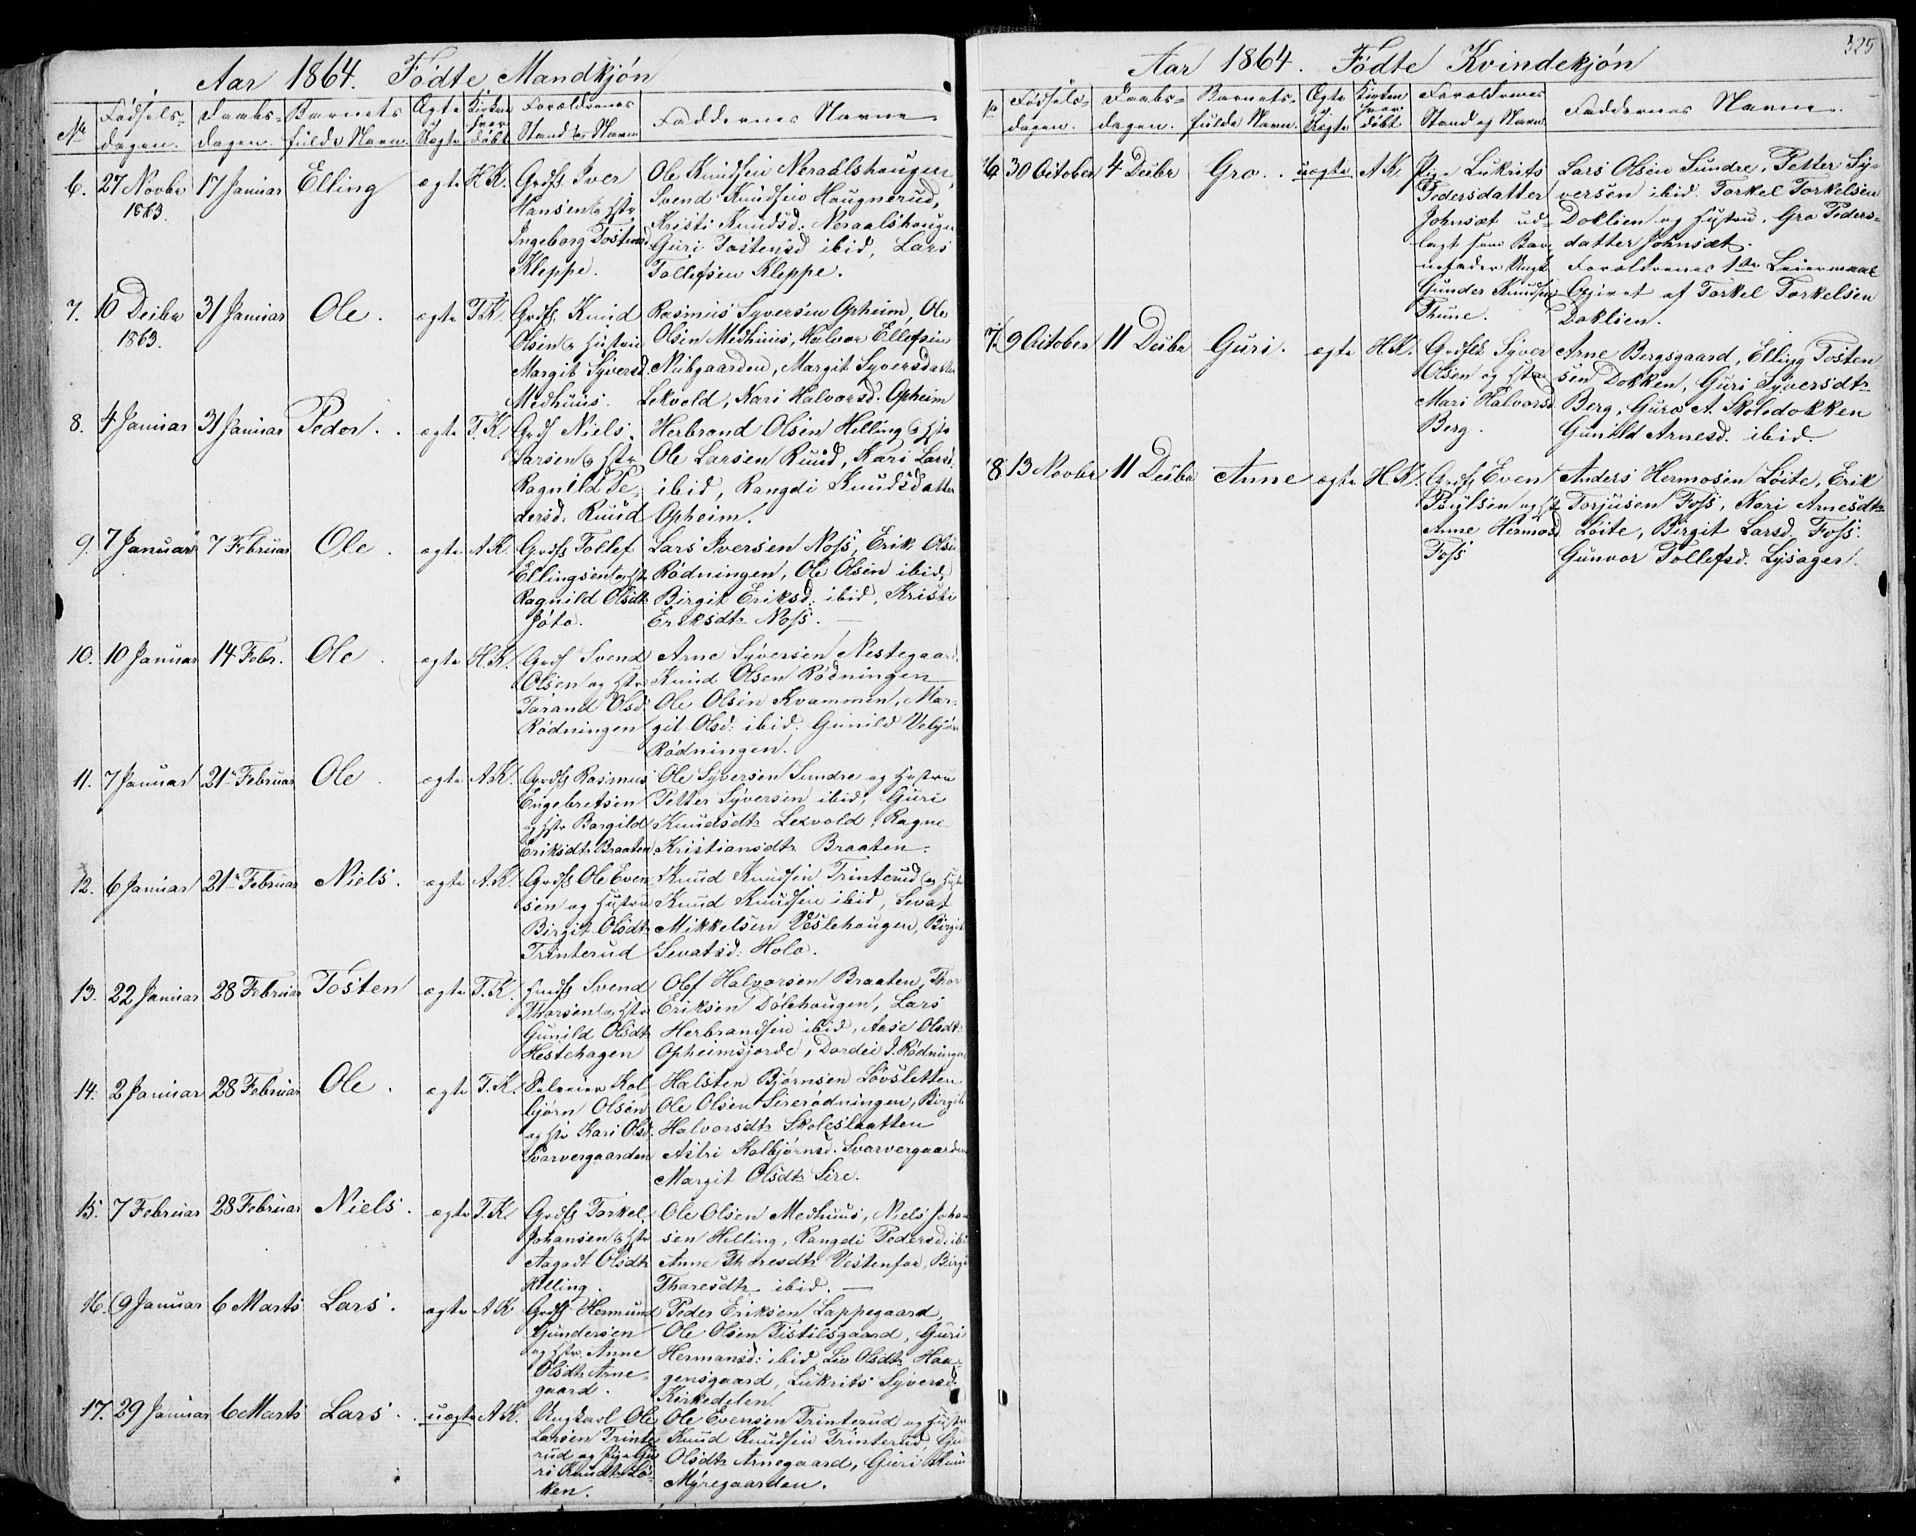 Aar 1864. Fødte Mandkjøn
No Fødsels-dagen. Daabs-dagen. Barnets fulde Navn. Ægte el Uægte Kirken hvor døbt Forældrenes Stand og Navn Faddernes Navne
6. 27 Novbr 1863. 17 Januar Elling ægte H.K. Grdfs Iver
Hansen og Hstr
Ingeborg Tostensd
Kleppe.
Ole Knudsen Neraalshaugen,
Svend Knudsen Haugnerud,
Kristi Knudsd: Neraalshaugen
Guri Tostensd ibid, Lars
Tollefsen Kleppe.
7. 16 Decbr 1863. 31 Januar Ole. ægte T.K. Grdfs. Knud
Olsen og Hustru
Margit Syversd.
Medhuus.
Rasmus Syversen Opheim, Ole
Olsen Medhuus, Halvor Ellefsen
Nubgaarden, Margit Syversdatter
Lekvold, Kari Halvorsd. Opheim
8. 4 Januar 31 Januar Peder. ægte T.K. Grdfs Niels
Larsen og Hstr
Ragnild Pe-
dersd. Ruud
Herbrand Olsen Helling og Hstr
Ole Larsen Ruud, Kari Larsd.
ibid, Rangdi Knudsdatter
Opheim.
9. 7 Januar 7 Februar Ole. ægte A.K. Grdfs Tollef
Ellingsen og Hstr
Ragnild Olsdtr
Jøto.
Lars Iversen Noss, Erik Olsen
Rødningen, Ole Olsen ibid,
Birgit Eriksd. ibid, Kristi
Eriksdtr Noss.
10. 10 Januar 14 Febr. Ole. ægte H.K. Grdfs Svend
Olsen og Hstr
Tarand Olsd.
Rødningen
Arne Syversen Nestegaard,
Knud Olsen Rødningen
Ole Olsen Kvammen, Mar-
git Olsd: ibid. Gunild
Rødningen.
11. 7 Januar 21 Februar Ole. ægte A.K. Grdfs Rasmus
Engebretsen
og Hstr Bargild
Eriksdtr Braaten
Ole Syversen Sundre og Hustru
Petter Syversen ibid, Guri
Knudsdtr Lekvold, Ragne
Kristiansdtr Braaten.
12. 6 Januar 21 Februar Niels. ægte A.K. Grdfs Ole Even-
sen og Hustru
Birgit Olsdtr
Trinterud
Knud Knudsen Trinterud og Hustr
Knud Knudsen ibid, Sevat
Mikkelsen Veslehaugen, Birgit
Sevatsd: Holo.
13. 22 Januar 28 Februar Tosten ægte T.K. Svend
Thorsen og Hstr
Gunild Olsdtr
Hestehagen
Olf Halvorsen Braaten, Thor
Eriksen Dølehaugen, Lars
Herbrandsen ibid, Aase Olsdtr
Opheimsjorde, Dordei I. Rødningen
14. 2 Januar 28 Februar Ole. ægte T.K. Kol-
bjørn Olsen
og Hstr Kari Olsd.
Svarvergaarden
Halsten Bjørnsen Løvsletten
Ole Olsen Sirerødningen, Birgit
Halvorsdtr Skoleslaatten
Astri Kolbjørnsd. Svarvergaarden
Margit Olsdtr Sire.
15. 7 Februar 28 Februar Niels. ægte T.K. Grdfs Torkel
Johansen og Hstr
Aagodt Olsdtr
Helling.
Ole Olsen Medhuus, Niels Johan-
sen Helling, Rangdi Pedersd. ibid
Anne Tharesdtr Vestenfor, Birgit
Tharesdtr ibid.
16. 9 Januar 6 Marts Lars. ægte A.K. Grdfs Hermund
Gundersen
og Hstr. Anne
Olsdtr Arne-
gaard.
Peder Eriksen Lappegaard,
Ole Olsen Tistilsgaard, Guri
Hermansd: ibid, Liv Olsdtr Haa-
gensgaard, Lukrits Syversd.
Kirkedelen.
17. 29 Januar 6 Marts Lars. uægte A.K. Ungkarl Ole
Larsen Trinte-
rud og Pige Gu-
ri Knudtr Lø-
ken.
Ole Evensen Trinterud og Hustr
Knud Knudsen Trinterud, Gu
Olsdtr Arnegaard, Guri Knu
Myregaarden.
325
Aar 1864. Fødte Kvindekjøn
No Fødsels-dagen. Daabs-dagen. Barnets fulde Navn. Ægte el Uægte Kirken hvor døbt Forældrenes Stand og Navn. Faddernes Navne.
6 30 October 4 Decbr Gro. uægte A.K. Pige Lukrits
Pedersdatter
Johnsæt ud-
lagt som Bar-
nefader Ungk
Gunder Knudsen
Thune.
Lars Olsen Sundre, Petter Sy-
versen ibid. Torkel Torkelsen
Doklien og Hustru, Gro Peders-
datter Johnsæt.
Forældrenes 1ste Leiermaal
Opgivet af Torkel Torkelsen
Doklien.
7. 9 October 11 Decbr Guri. ægte H.K. Grdfs Syver
Olsen og Hstr
Mari Halvorsd
Berg.
Arne Bergsgaard, Elling Tosten-
sen Dokken, Guri Syversdtr
Berg, Guro A. Skoledokken
Gunild Arnesd. ibid.
8 13 Novbr 11 Decbr Anne ægte H.K. Grdfs Even
Poulsen og Hstr
Anne Hermosd
Foss
Anders Hermosen Løite, Erik
Torjusen Foss, Kari Arnesdtr
Løite, Birgit Larsd. Foss.
Gunvor Tollefsd. Lysager.